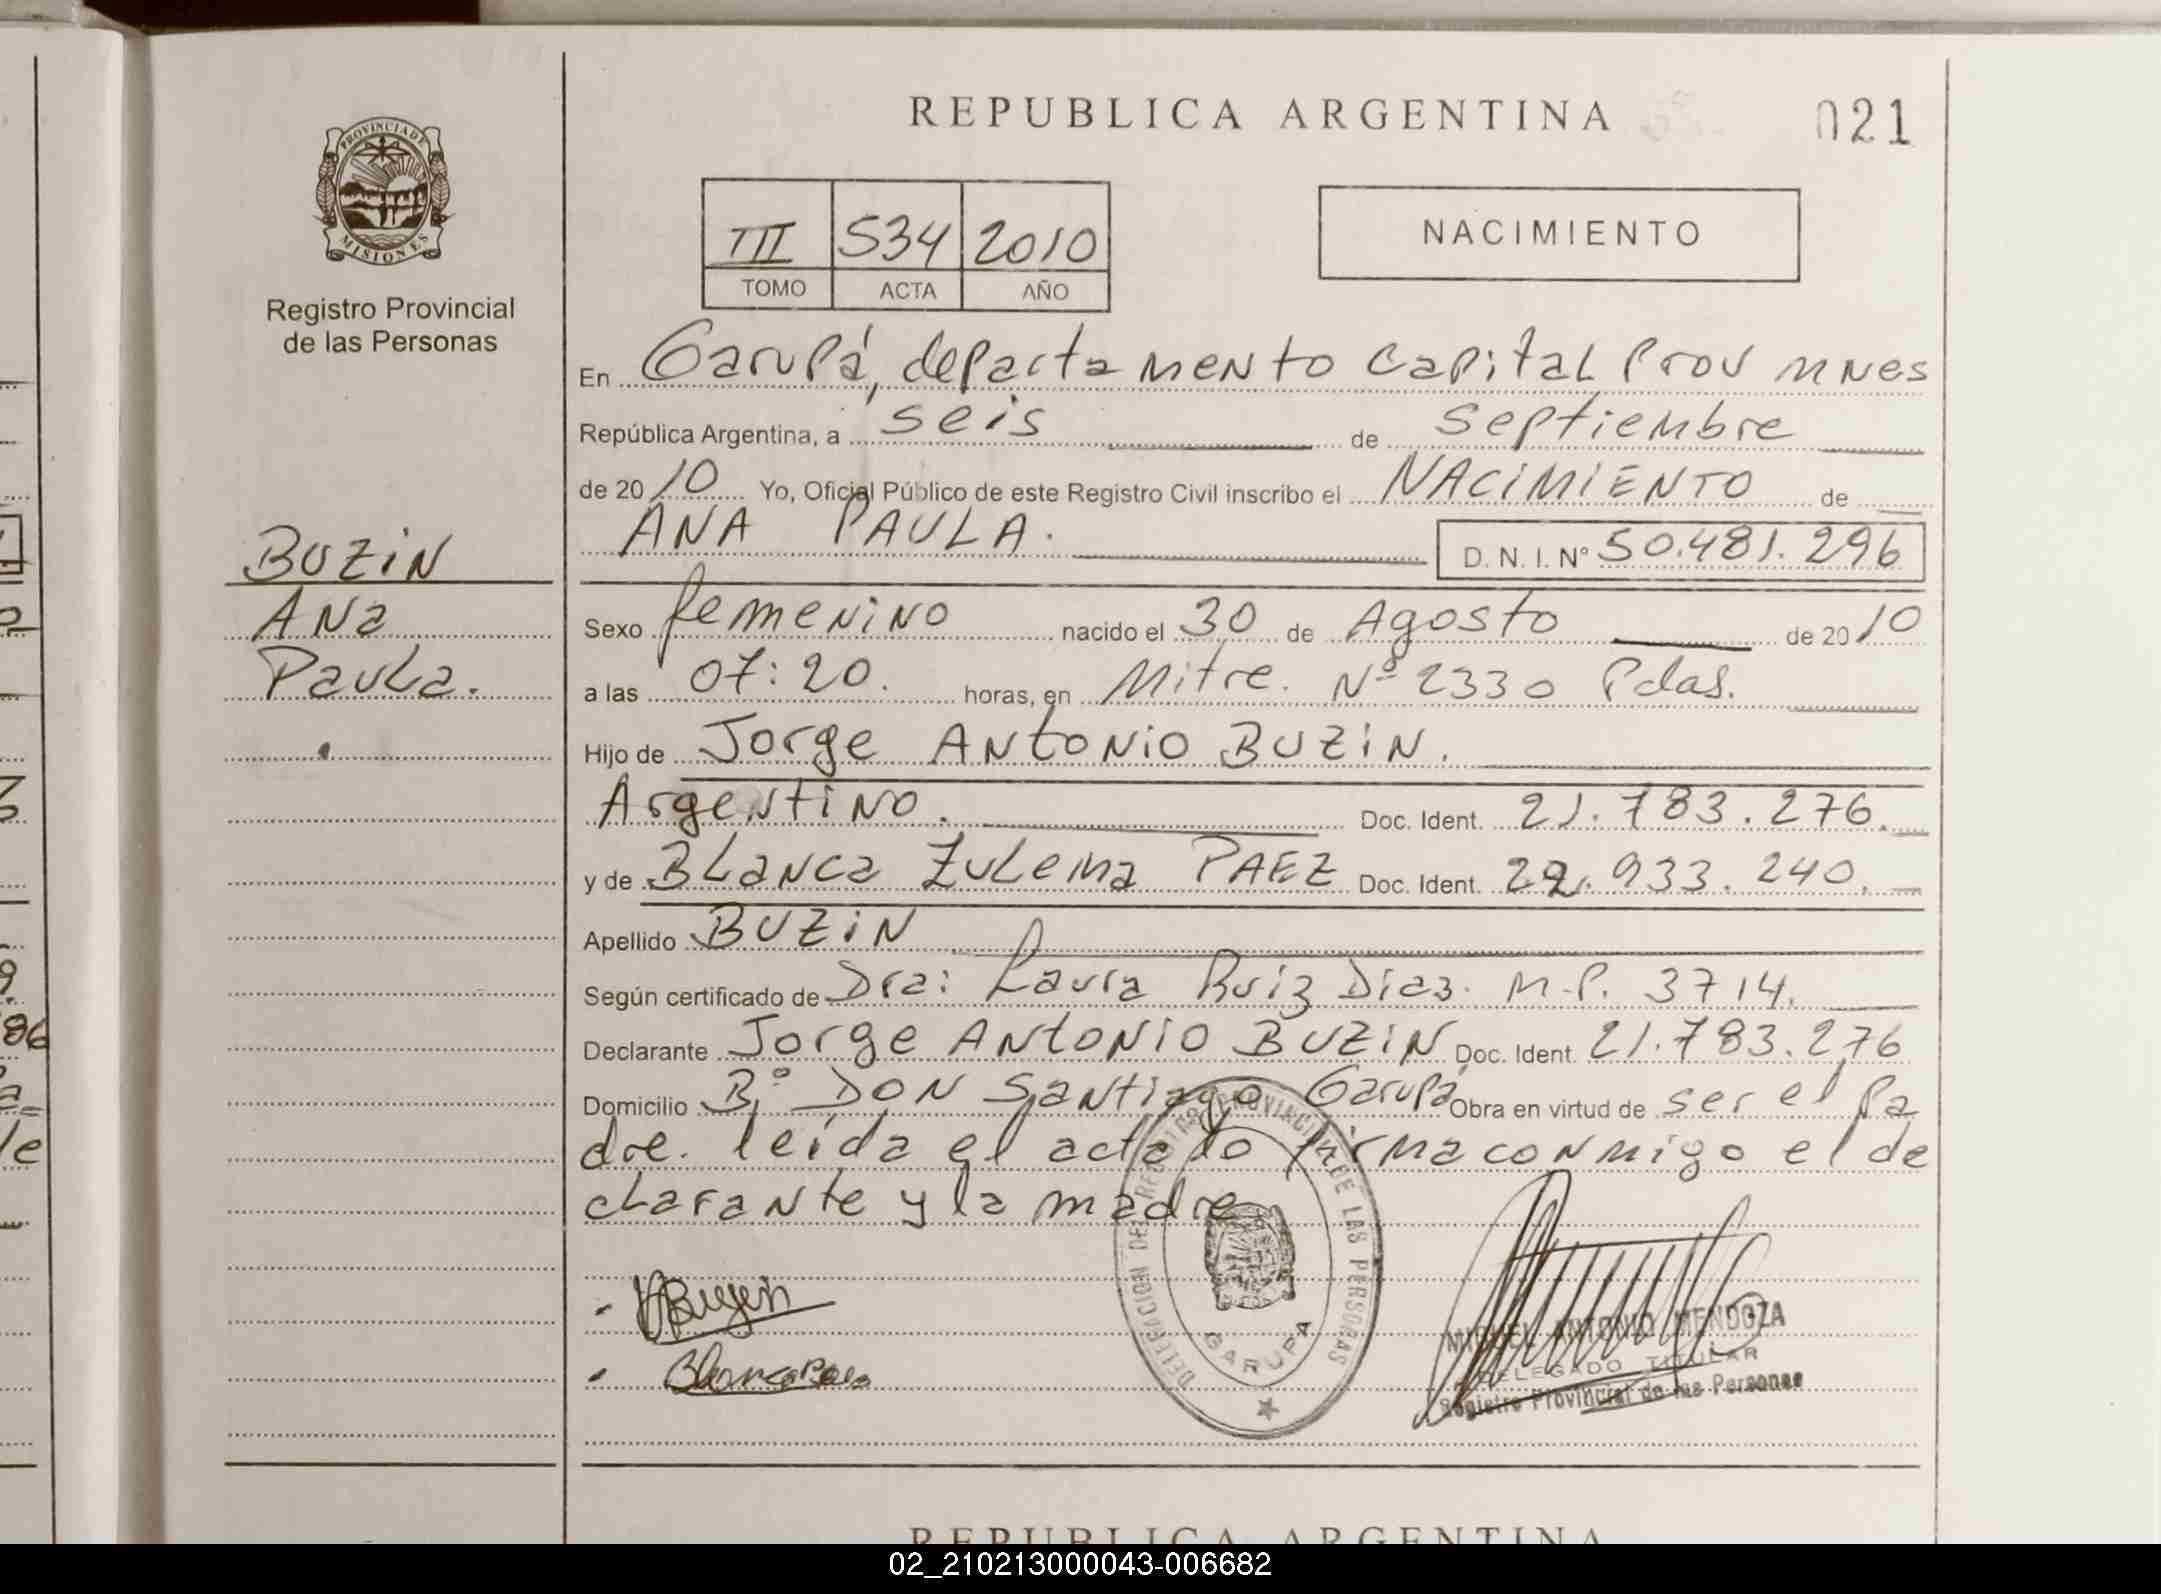 REPUBLICA ARGENTINA
021
PROVINCIA DE
MISIONES
Registro Provincial
de las Personas
III 534 2010
TOMO ACTA AÑO
NACIMIENTO
En Garupá, departamento Capital Prov Mnes
República Argentina, a seis de septiembre
de 2010 Yo, Oficial Público de este Registro Civil inscribo el NACIMIENTO de
ANA PAULA. D. N. I. Nº 50.481.296
BUZIN
Ana
Paula.
Sexo femenino nacido el 30 de Agosto de 2010
a las 07:20. horas, en Mitre. Nº 2330 Pdas.
Hijo de Jorge Antonio BUZIN.
Argentino. Doc. Ident. 21.783.276.
y de Blanca Zulema PAEZ Doc. Ident. 22.933.240.
Apellido BUZIN
Según certificado de Dra: Laura Ruiz Diaz. M.P. 3714.
Declarante Jorge Antonio BUZIN Doc. Ident. 21.783.276
Domicilio Bº DON Santiago Garupá Obra en virtud de ser el pa
dre. leída el acta lo firma conmigo el de
clarante y la madre
DELEGACION DEL REGISTRO PROVINCIAL DE LAS PERSONAS
GARUPA
MIGUEL ANTONIO MENDOZA
DELEGADO TITULAR
Registro Provincial de las Personas
REPUBLICA ARGENTINA
02_210213000043-006682